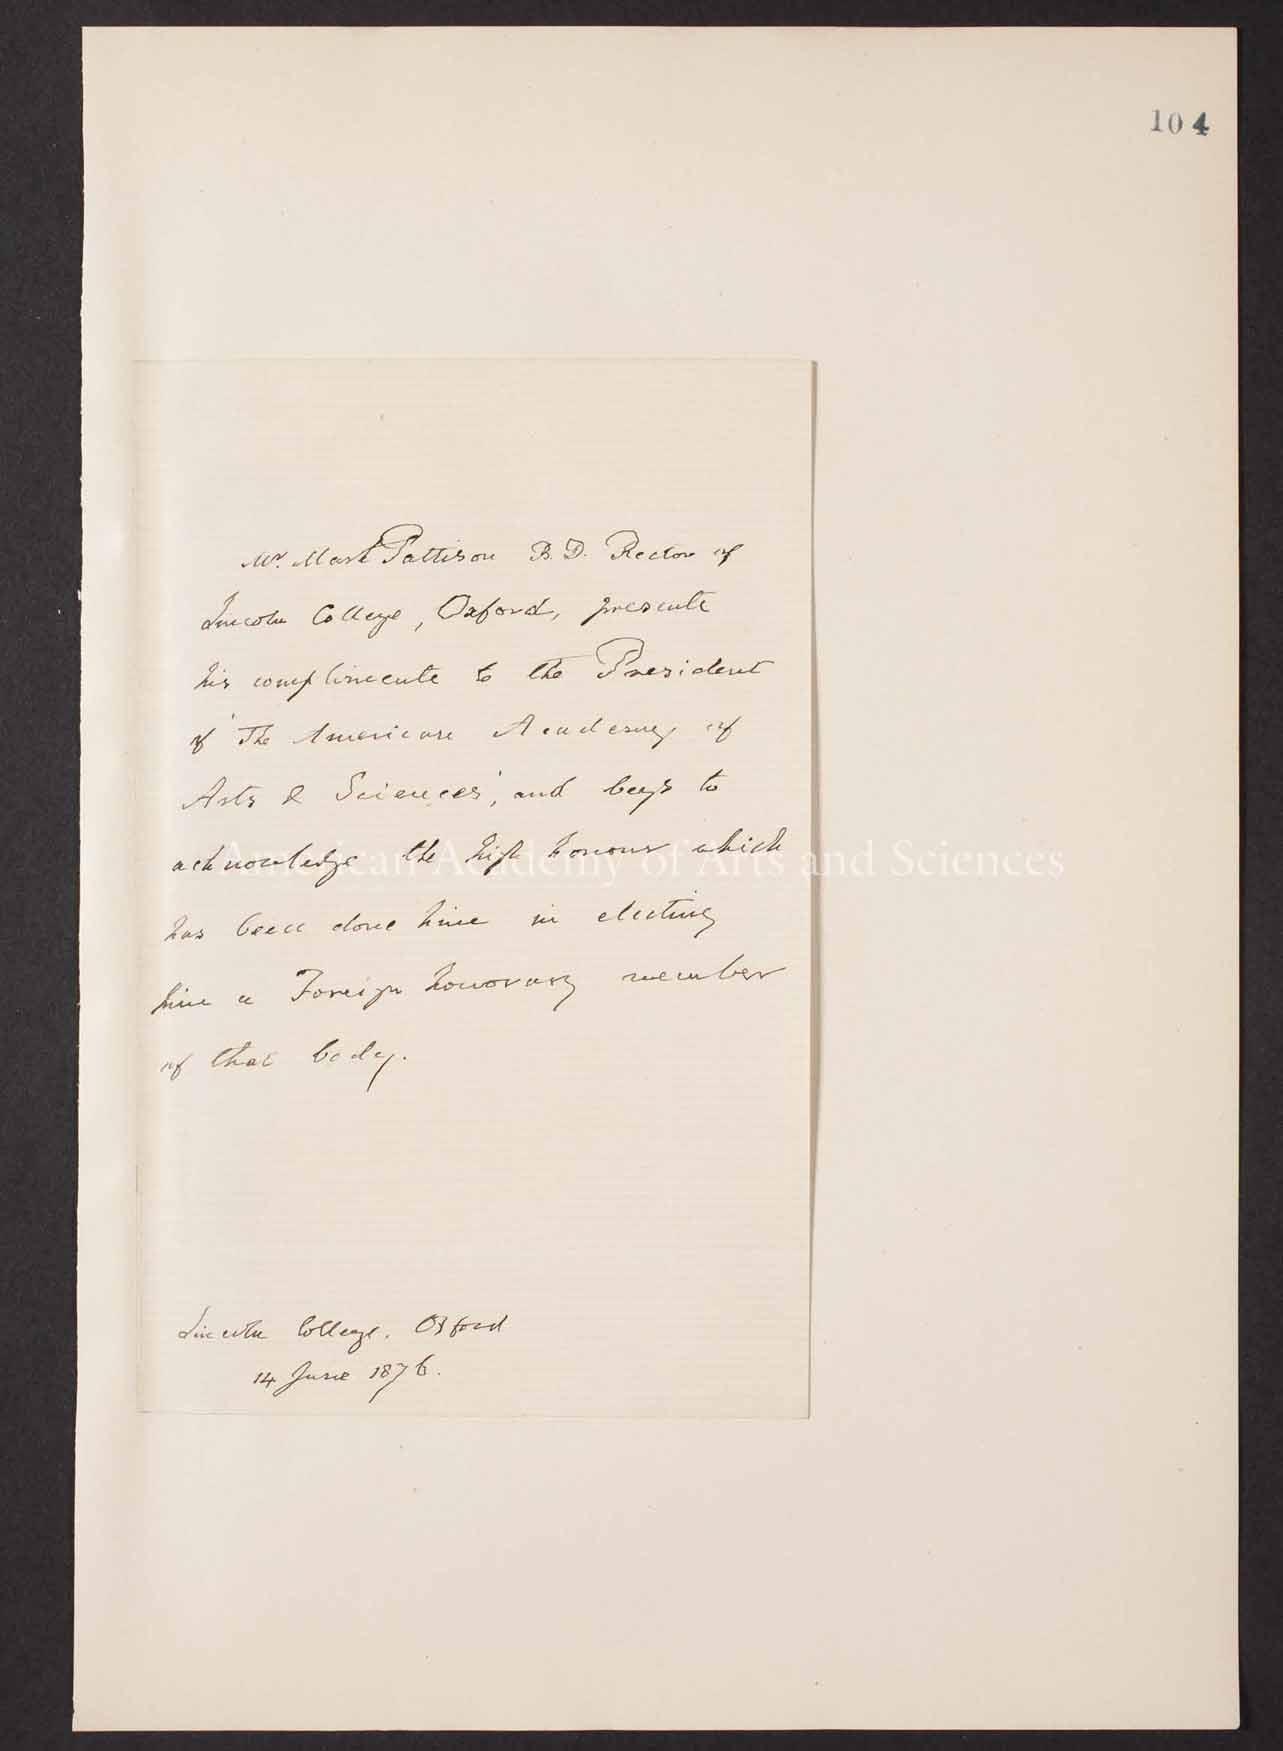 104
Mr. Mark Pattison B.D. Rector of
Lincoln College, Oxford, presents
his compliments to the President
of 'The American Academy of
Arts & Sciences', and begs to
acknowledge the high honour which
American Academy of Arts and Sciences
has been done him in electing
him a Foreign honorary member
of that body.
Lincoln College. Oxford
14 June 1876.